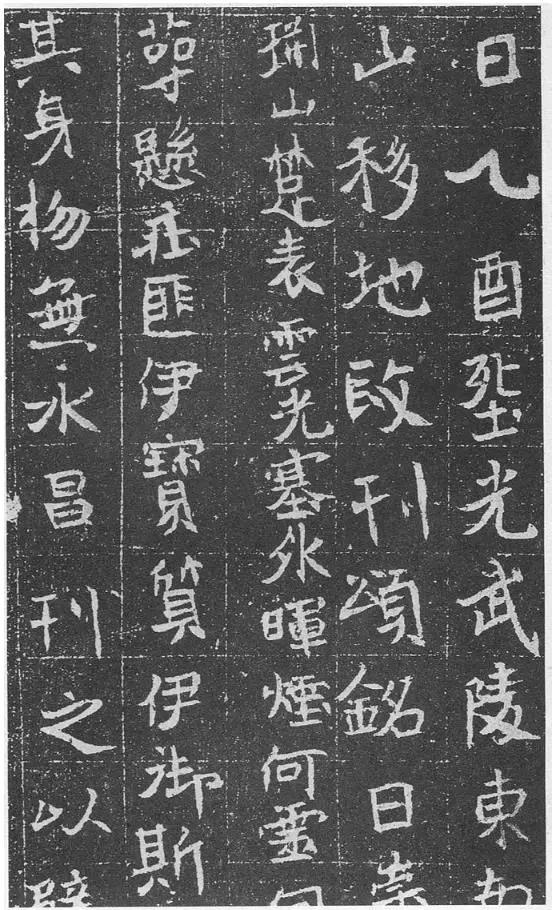 日乙酉塟光武陵東南
山移地改刊頌銘曰崇
山楚表雲光塞外暉煙何靈
懸匪伊寳質伊御斯
其身物無永昌刊之以